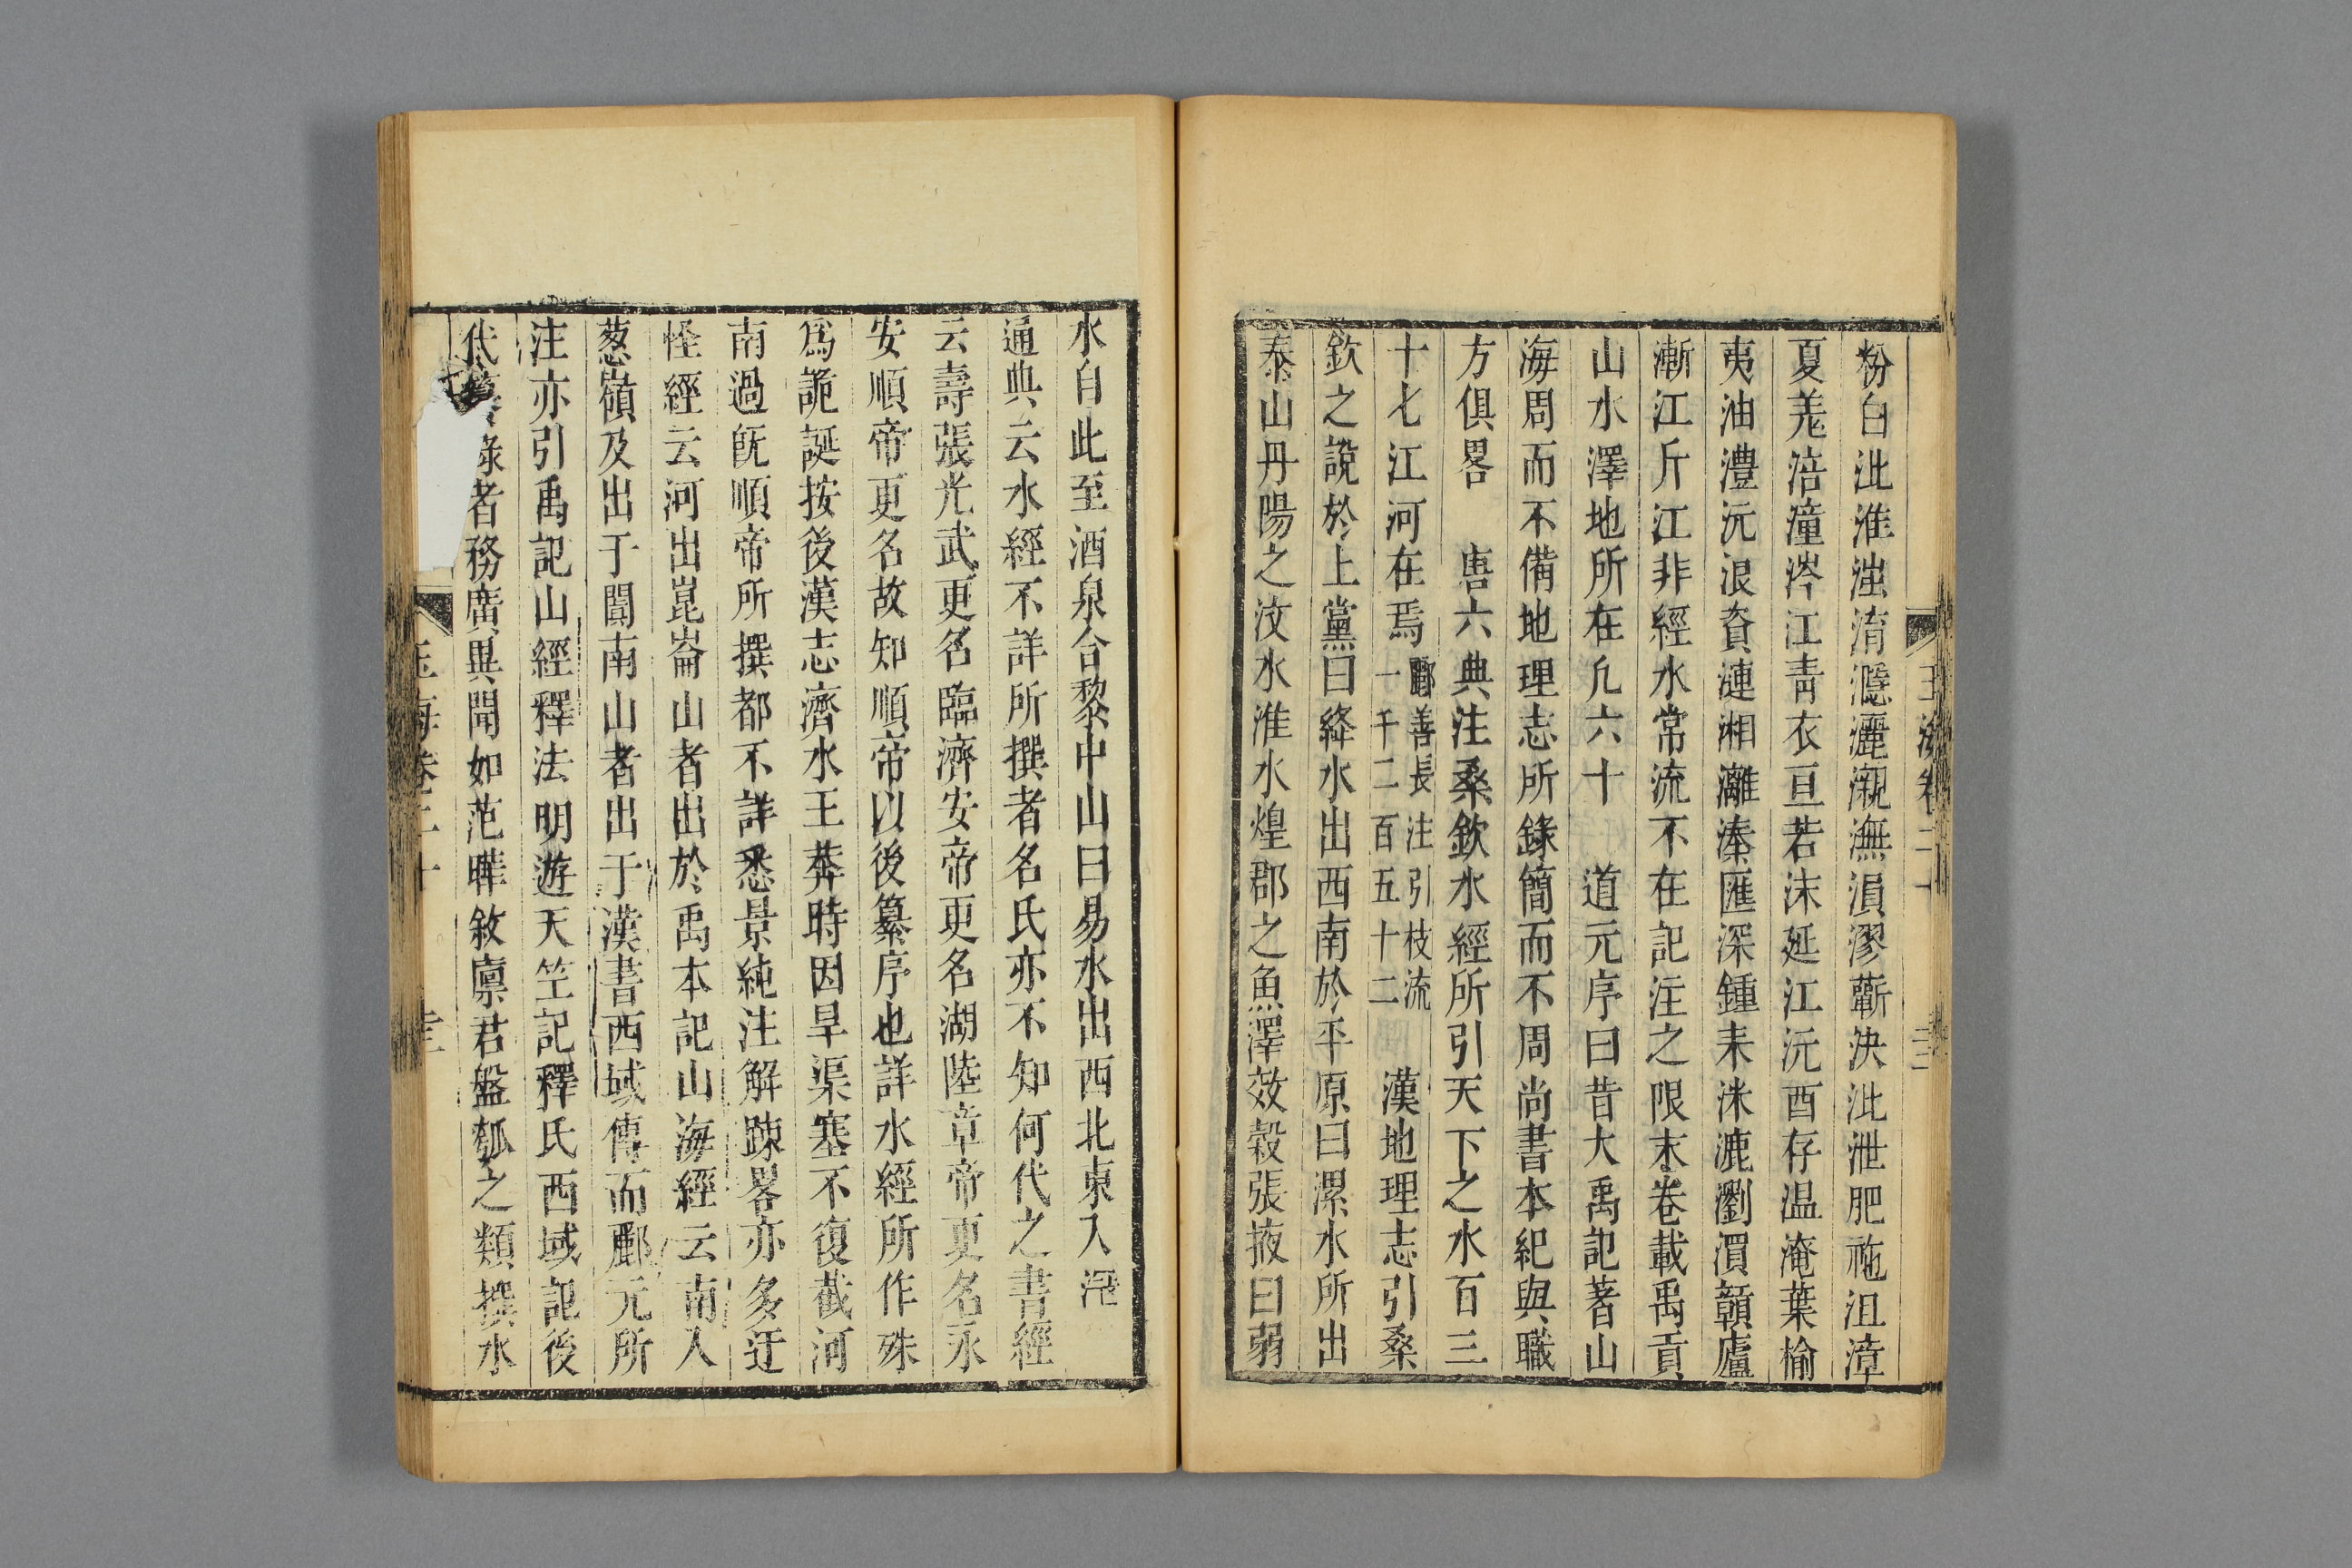 粉白沘淮滍淯㶏灈瀙潕溳漻蘄決沘泄肥施沮漳
夏羌涪潼涔江青衣亘若沫延江沅酉存温淹葉榆
夷油澧沅浪資漣湘灕溱匯深鍾耒洣漉瀏㵋贛廬
漸江斤江非經水常流不在記注之限末卷載禹貢
山水澤地所在凡六十 道元序曰昔大禹記著山
海周而不備地理志所錄簡而不周尚書本紀與職
方俱畧 唐六典注桑欽水經所引天下之水百三
十七江河在焉酈善長注引枝流一千二百五十二 漢地理志引桑
欽之說於上黨曰絳水出西南於平原曰漯水所出
泰山丹陽之汶水淮水煌郡之魚澤效穀張掖曰弱
玉海卷二十
水自此至酒泉合黎中山曰易水出西北東入滱
通典云水經不詳所撰者名氏亦不知何代之書經
云壽張光武更名臨濟安帝更名湖陸章帝更名永
安順帝更名故知順帝以後纂序也詳水經所作殊
爲詭誕按後漢志濟水王莽時因旱渠塞不復截河
南過旣順帝所撰都不詳悉景純注解踈畧亦多迂
怪經云河出崑崙山者出於禹本記山海經云南入
葱嶺及出于闐南山者出于漢書西域傳而酈元所
注亦引禹記山經釋法明遊天竺記釋氏西域記後
代纂錄者務廣異聞如范曄敘廩君盤瓠之類撰水
玉海卷二十